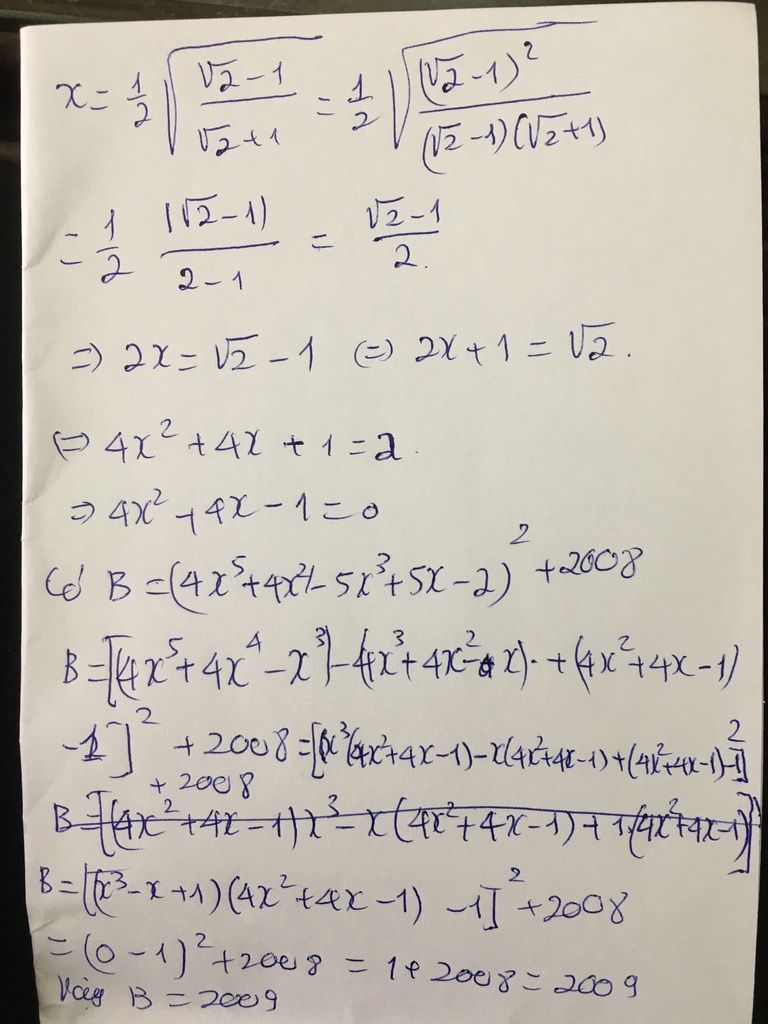 x = 1/2 √((√2 - 1)/(√2 + 1)) = 1/2 √((√2 - 1)²/((√2 - 1)(√2 + 1)))
= 1/2 |√2 - 1|/(2 - 1) = (√2 - 1)/2.
⇒ 2x = √2 - 1 ⇔ 2x + 1 = √2.
⇔ 4x² + 4x + 1 = 2.
⇒ 4x² + 4x - 1 = 0
Có B = (4x⁵ + 4x⁴ - 5x³ + 5x - 2)² + 2008
B = [(4x⁵ + 4x⁴ - x³) - (4x³ + 4x² - x) + (4x² + 4x - 1)
-1]² + 2008 = [x³(4x² + 4x - 1) - x(4x² + 4x - 1) + (4x² + 4x - 1) - 1]²
+ 2008
B = [(4x² + 4x - 1)x³ - x(4x² + 4x - 1) + 1.(4x² + 4x - 1)]
B = [(x³ - x + 1)(4x² + 4x - 1) - 1]² + 2008
= (0 - 1)² + 2008 = 1 + 2008 = 2009
Vậy B = 2009